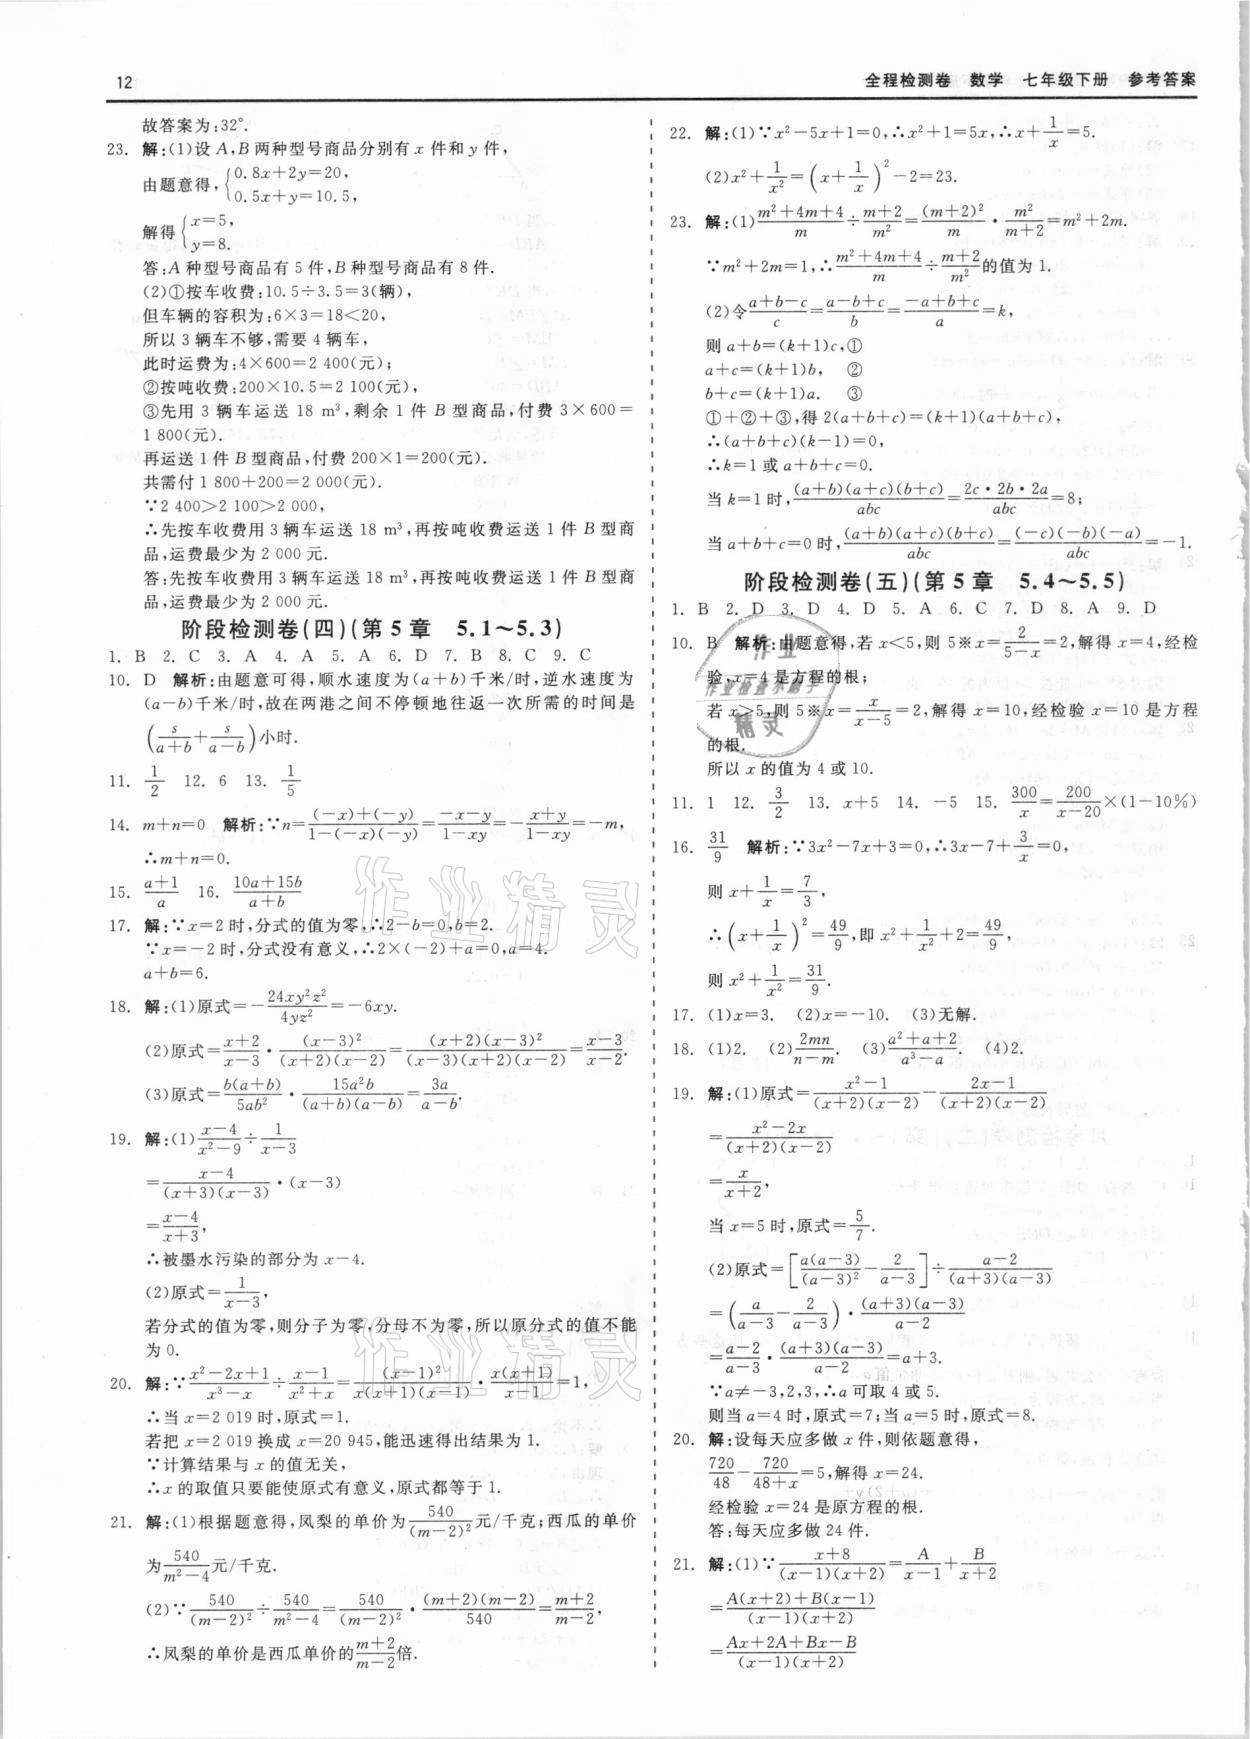 12
全程检测卷 数学 七年级下册 参考答案
故答案为:32°.
23. 解:(1)设 A,B 两种型号商品分别有 x 件和 y 件,
由题意得,{0.8x+2y=20,
0.5x+y=10.5,
解得{x=5,
y=8.
答:A 种型号商品有 5 件,B 种型号商品有 8 件.
(2)①按车收费:10.5÷3.5=3(辆),
但车辆的容积为:6×3=18<20,
所以 3 辆车不够,需要 4 辆车,
此时运费为:4×600=2 400(元);
②按吨收费:200×10.5=2 100(元);
③先用 3 辆车运送 18 m³,剩余 1 件 B 型商品,付费 3×600=
1 800(元).
再运送 1 件 B 型商品,付费 200×1=200(元).
共需付 1 800+200=2 000(元).
∵2 400>2 100>2 000,
∴先按车收费用 3 辆车运送 18 m³,再按吨收费运送 1 件 B 型商
品,运费最少为 2 000 元.
答:先按车收费用 3 辆车运送 18 m³,再按吨收费运送 1 件 B 型
商品,运费最少为 2 000 元.
阶段检测卷(四)(第 5 章 5.1～5.3)
1. B 2. C 3. A 4. A 5. A 6. D 7. B 8. C 9. C
10. D 解析:由题意可得,顺水速度为(a+b)千米/时,逆水速度为
(a-b)千米/时,故在两港之间不停顿地往返一次所需的时间是
(s/(a+b)+s/(a-b))小时.
11. 1/2 12. 6 13. 1/5
14. m+n=0 解析:∵n=((-x)+(-y))/(1-(-x)(-y))=(-x-y)/(1-xy)=-(x+y)/(1-xy)=-m,
∴m+n=0.
15. (a+1)/a 16. (10a+15b)/(a+b)
17. 解:∵x=2 时,分式的值为零,∴2-b=0,b=2.
∵x=-2 时,分式没有意义,∴2×(-2)+a=0,a=4.
a+b=6.
18. 解:(1)原式=-24xy²z²/4yz²=-6xy.
(2)原式=(x+2)/(x-3)·(x-3)²/((x+2)(x-2))=(x+2)(x-3)²/((x-3)(x+2)(x-2))=(x-3)/(x-2).
(3)原式=b(a+b)/5ab²·15a²b/((a+b)(a-b))=3a/(a-b).
19. 解:(1)(x-4)/(x²-9)÷1/(x-3)
=(x-4)/((x+3)(x-3))·(x-3)
=(x-4)/(x+3),
∴被墨水污染的部分为 x-4.
(2)原式=1/(x-3),
若分式的值为零,则分子为零,分母不为零,所以原分式的值不能
为 0.
20. 解:∵(x²-2x+1)/(x³-x)÷(x-1)/(x²+x)=(x-1)²/(x(x+1)(x-1))·x(x+1)/(x-1)=1,
∴当 x=2 019 时,原式=1.
若把 x=2 019 换成 x=20 945,能迅速得出结果为 1.
∵计算结果与 x 的值无关,
∴x 的取值只要能使原式有意义,原式都等于 1.
21. 解:(1)根据题意得,凤梨的单价为540/(m-2)²元/千克;西瓜的单价
为540/(m²-4)元/千克.
(2)∵540/(m-2)²÷540/(m²-4)=540/(m-2)²·(m+2)(m-2)/540=(m+2)/(m-2),
∴凤梨的单价是西瓜单价的(m+2)/(m-2)倍.
22. 解:(1)∵x²-5x+1=0,∴x²+1=5x,∴x+1/x=5.
(2)x²+1/x²=(x+1/x)²-2=23.
23. 解:(1)(m²+4m+4)/m÷(m+2)/m²=(m+2)²/m·m²/(m+2)=m²+2m.
∵m²+2m=1,∴(m²+4m+4)/m÷(m+2)/m²的值为 1.
(2)令(a+b-c)/c=(a-b+c)/b=(-a+b+c)/a=k,
则 a+b=(k+1)c,①
a+c=(k+1)b, ②
b+c=(k+1)a. ③
①+②+③,得 2(a+b+c)=(k+1)(a+b+c),
∴(a+b+c)(k-1)=0,
∴k=1 或 a+b+c=0.
当 k=1 时,(a+b)(a+c)(b+c)/abc=2c·2b·2a/abc=8;
当 a+b+c=0 时,(a+b)(a+c)(b+c)/abc=(-c)(-b)(-a)/abc=-1.
阶段检测卷(五)(第 5 章 5.4～5.5)
1. B 2. D 3. D 4. D 5. A 6. C 7. D 8. A 9. D
10. B 解析:由题意得,若 x<5,则 5※x=2/(5-x)=2,解得 x=4,经检
验,x=4 是方程的根;
若 x>5,则 5※x=x/(x-5)=2,解得 x=10,经检验 x=10 是方程
的根.
所以 x 的值为 4 或 10.
11. 1 12. 3/2 13. x+5 14. -5 15. 300/x=200/(x-20)×(1-10%)
16. 31/9 解析:∵3x²-7x+3=0,∴3x-7+3/x=0,
则 x+1/x=7/3,
∴(x+1/x)²=49/9,即 x²+1/x²+2=49/9,
则 x²+1/x²=31/9.
17. (1)x=3. (2)x=-10. (3)无解.
18. (1)2. (2)2mn/(n-m). (3)(a²+a+2)/(a³-a). (4)2.
19. 解:(1)原式=(x²-1)/((x+2)(x-2))-(2x-1)/((x+2)(x-2))
=(x²-2x)/((x+2)(x-2))
=x/(x+2),
当 x=5 时,原式=5/7.
(2)原式=[a(a-3)/(a-3)²-2/(a-3)]÷(a-2)/((a+3)(a-3))
=(a/(a-3)-2/(a-3))·(a+3)(a-3)/(a-2)
=(a-2)/(a-3)·(a+3)(a-3)/(a-2)=a+3.
∵a≠-3,2,3,∴a 可取 4 或 5.
则当 a=4 时,原式=7;当 a=5 时,原式=8.
20. 解:设每天应多做 x 件,则依题意得,
720/48-720/(48+x)=5,解得 x=24.
经检验 x=24 是原方程的根.
答:每天应多做 24 件.
21. 解:(1)∵(x+8)/((x-1)(x+2))=A/(x-1)+B/(x+2)
=(A(x+2)+B(x-1))/((x-1)(x+2))
=(Ax+2A+Bx-B)/((x-1)(x+2))
作业
作业检查小助手
精灵
作业精灵
作业精灵